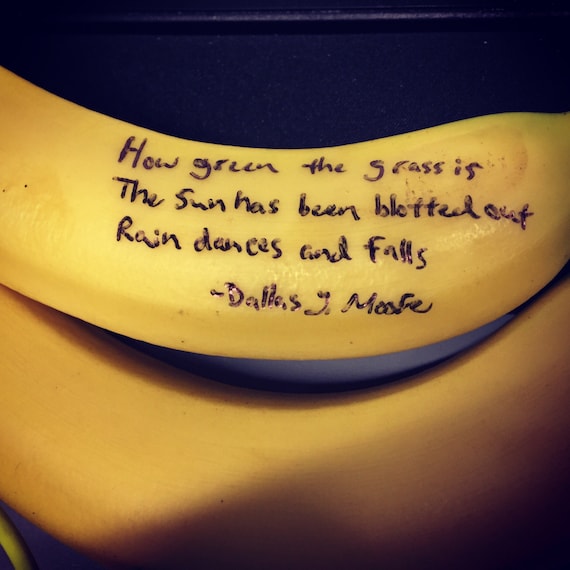 How green the grass is
The Sun has been blotted out
Rain dances and Falls
-Dallas J. Moore